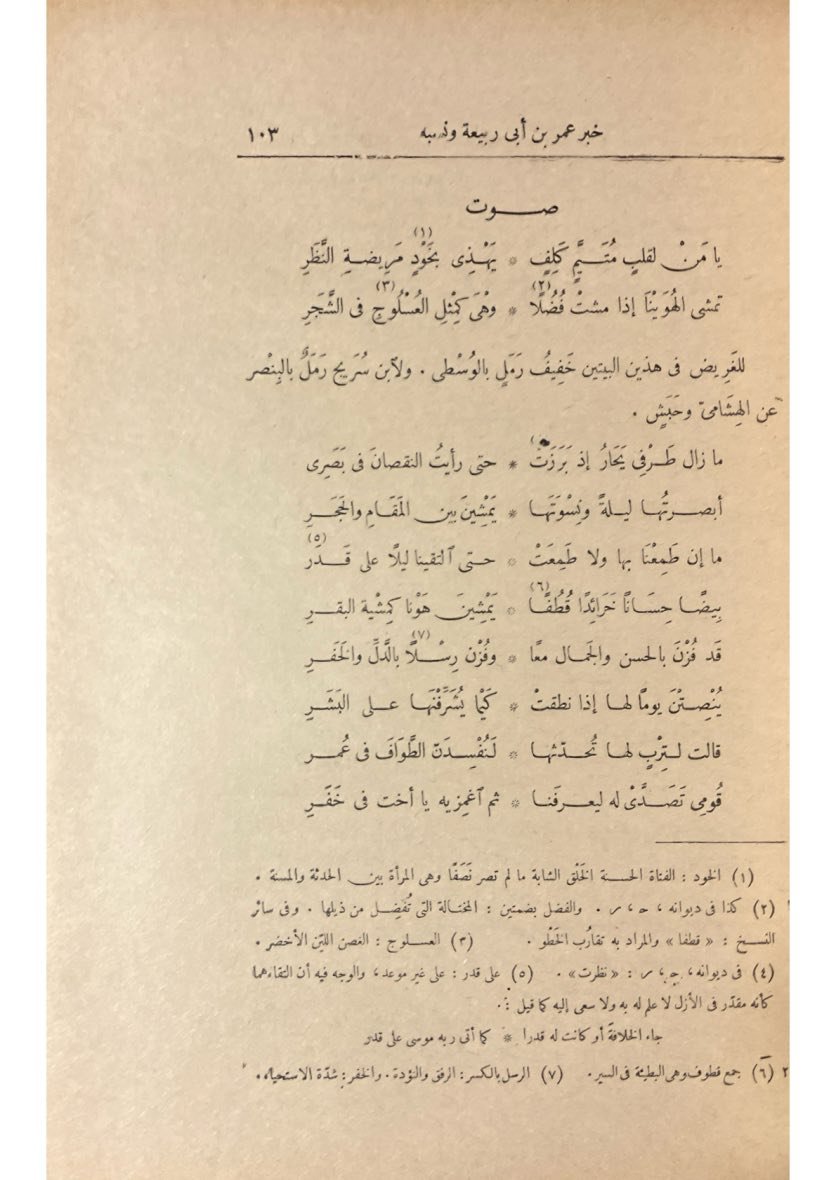 خبر عمر بن أبى ربيعة ونسبه ١٠٣
صـــوت
يا مَنْ لقلبٍ مُتَـيَّمٍ كَلِفٍ * يَهْذِى بخَوْدٍ (١) مَرِيضـةِ النَّظَرِ
تمشى الهُوَيْنَا إذا مشتْ فُضُلًا (٢) * وهْىَ كمِثْلِ العُسْلُوجِ (٣) فى الشَّجَرِ
للغَرِيض فى هذين البيتين خَفِيفُ رَمَلٍ بالوُسْطى . ولآبن سُرَيج رَمَلٌ بالبِنْصر
عن الهِشَامىّ وحَبَشٍ .
ما زال طَـرْفِى يَحَارُ إذ بَرَزَتْ * حتى رأيتُ النقصانَ فى بَصَرِى
أبصـرتُهـا ليـلةً ونِسْوَتَهَـا * يَمْشِينَ بين المَقَامِ والحَجَـرِ
ما إن طَمِعْنَا بها ولا طَمِعَتْ * حتـى آلتقينا ليلًا على قَـدَر (٥)
بِيضًـا حِسَـانًا خَرَائِدًا قُطُفًـا (٦) * يَمْشِينَ هَوْنا كمِشْية البقـرِ
قد فُزْنَ بالحسن والجَمال معًا * وفُزْن رِسْـلًا (٧) بالدَّلِّ والخَفَـرِ
يُنْصِتْنَ يومًا لهـا إذا نطقتْ * كَيْما يُشَرِّفْنَهـا عـلى البَشَـرِ
قالت لـتِرْبٍ لهـا تُحَـدّثها * لَنُفْسِـدَنّ الطَّوَافَ فى عُمـر
قُومِى تَصَـدَّىْ له ليعرفَنـا * ثم آغمِزيه يا أخت فى خَفَرِ
(١) الخود : الفتاة الحسنة الخَلْق الشابة ما لم تصر نَصَفًا وهى المرأة بين الحدثة والمسنة .
(٢) كذا فى ديوانه ، حـ ، ر . والفضل بضمتين : المختالة التى تُفْضِل من ذيلها . وفى سائر
النسخ : « قطفا » والمراد به تقارُب الخَطْو . (٣) العسلوج : الغصن الليّن الأخضر .
(٤) فى ديوانه، حـ، ر : « نظرت» . (٥) على قدر : على غير موعد، والوجه فيه أن التقاءهما
كأنه مقدّر فى الأزل لا علم له به ولا سعى إليه كما قيل :
جاء الخلافةَ أو كانت له قدرا * كما أتى ربه موسى على قدر
(٦) جمع قطوف وهى البطيئة فى السير . (٧) الرسل بالكسر : الرفق والتؤدة . والخفر : شدّة الاستحياء .